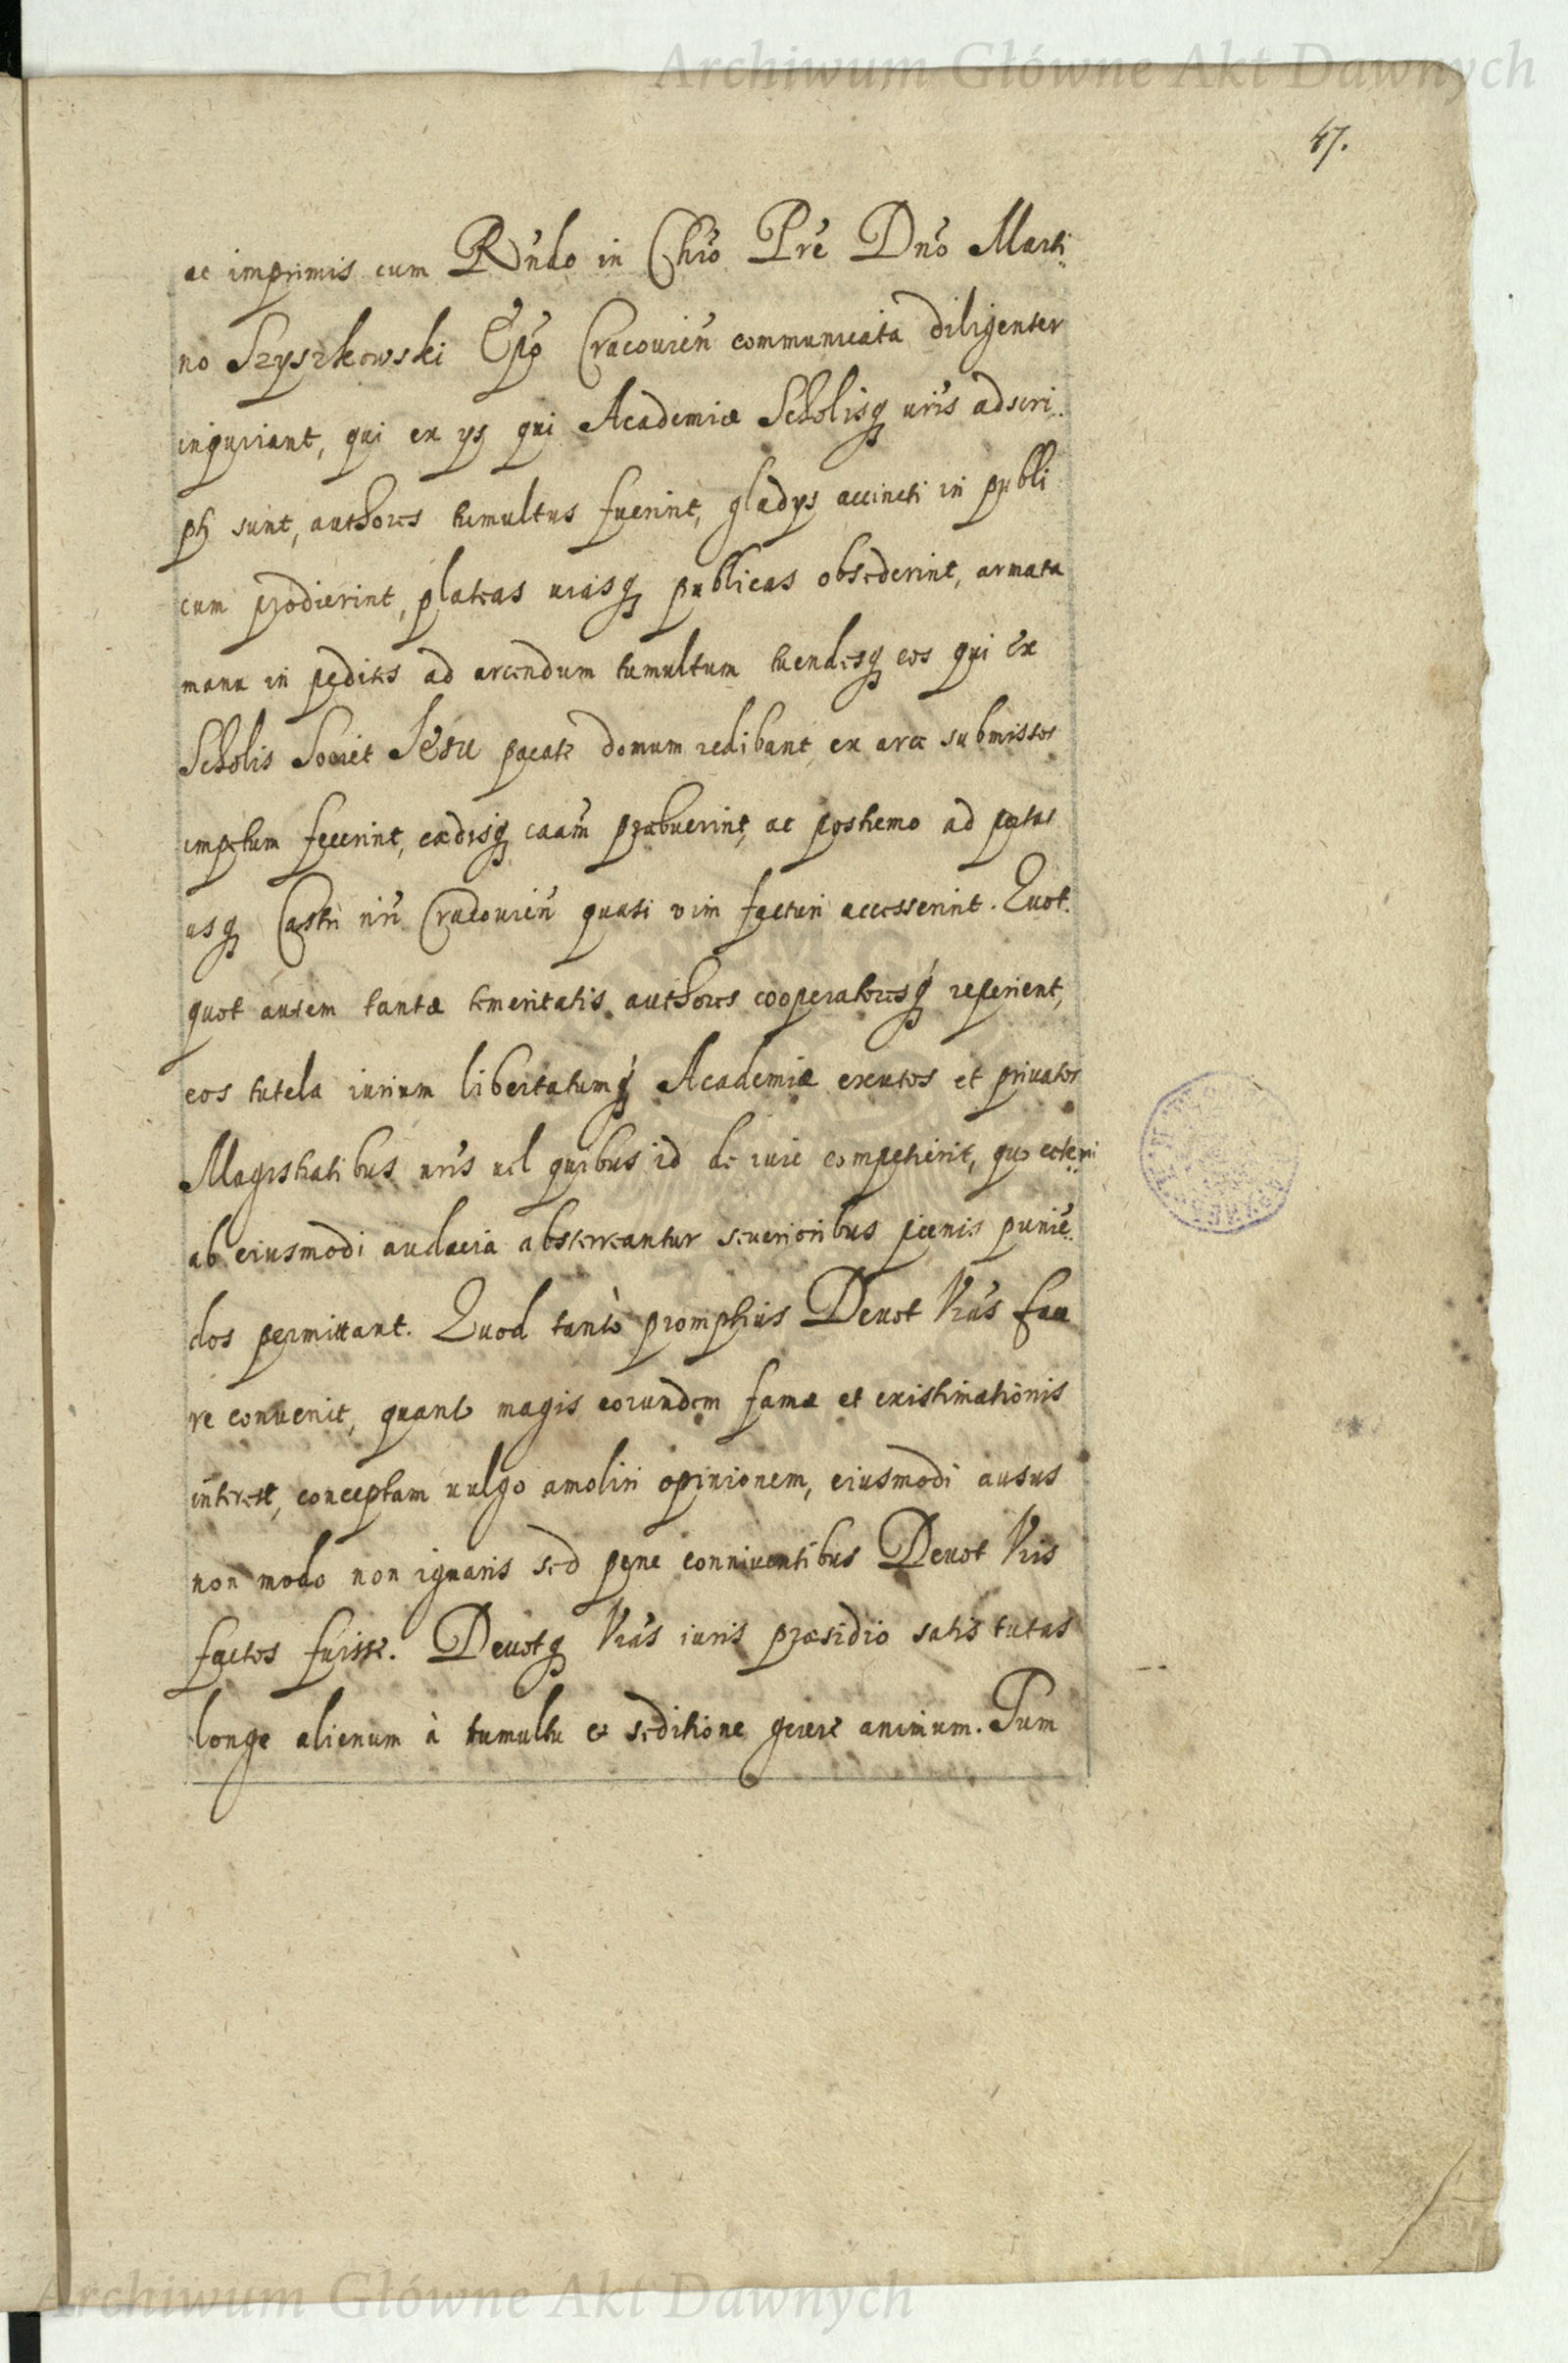 Archiwum Główne Akt Dawnych
47.
ac imprimis cum Rńdo in Chrō Prē Dnō Marti-
no Szyszkowski Epō Cracouień communicata diligenter
inquiriant, qui ex ys qui Academiæ Scholisq uris adscri-
pti sunt, authores tumultus fuerint, gladys accincti in publi
cum prodierint, plateas uiasq publicas obsederint, armata
manu in pedites ad arcendum tumultum tuendosq eos qui ex
Scholis Societ Jesu pacate domum redibant, ex arce submissos
impetum fecerint, cædisq caam præbuerint, ac postremo ad portas
usq Castri nrī Cracouień quasi vim facturi accesserint. Quot-
quot autem tantæ temeritatis authores cooperatoresq reperient,
eos tutela iurium libertatumq Academiæ exutos et priuatos
Magistratibus uris uel quibus id de iure competierit, quo ceteri
ab eiusmodi audacia absterreantur seuerioribus pœnis puniē-
dos permittant. Quod tantò promptius Deuot Vras face
re conuenit, quanto magis eorundem famæ et existimationis
interest, conceptam uulgo amoliri opinionem, eiusmodi ausus
non modo non ignaris sed pene conniuentibus Deuot Vris
factos fuisse. Deuotq Vras iuris præsidio satis tutas
longe alienum à tumultu & seditione gerere animum. Tum
Archiwum Główne Akt Dawnych